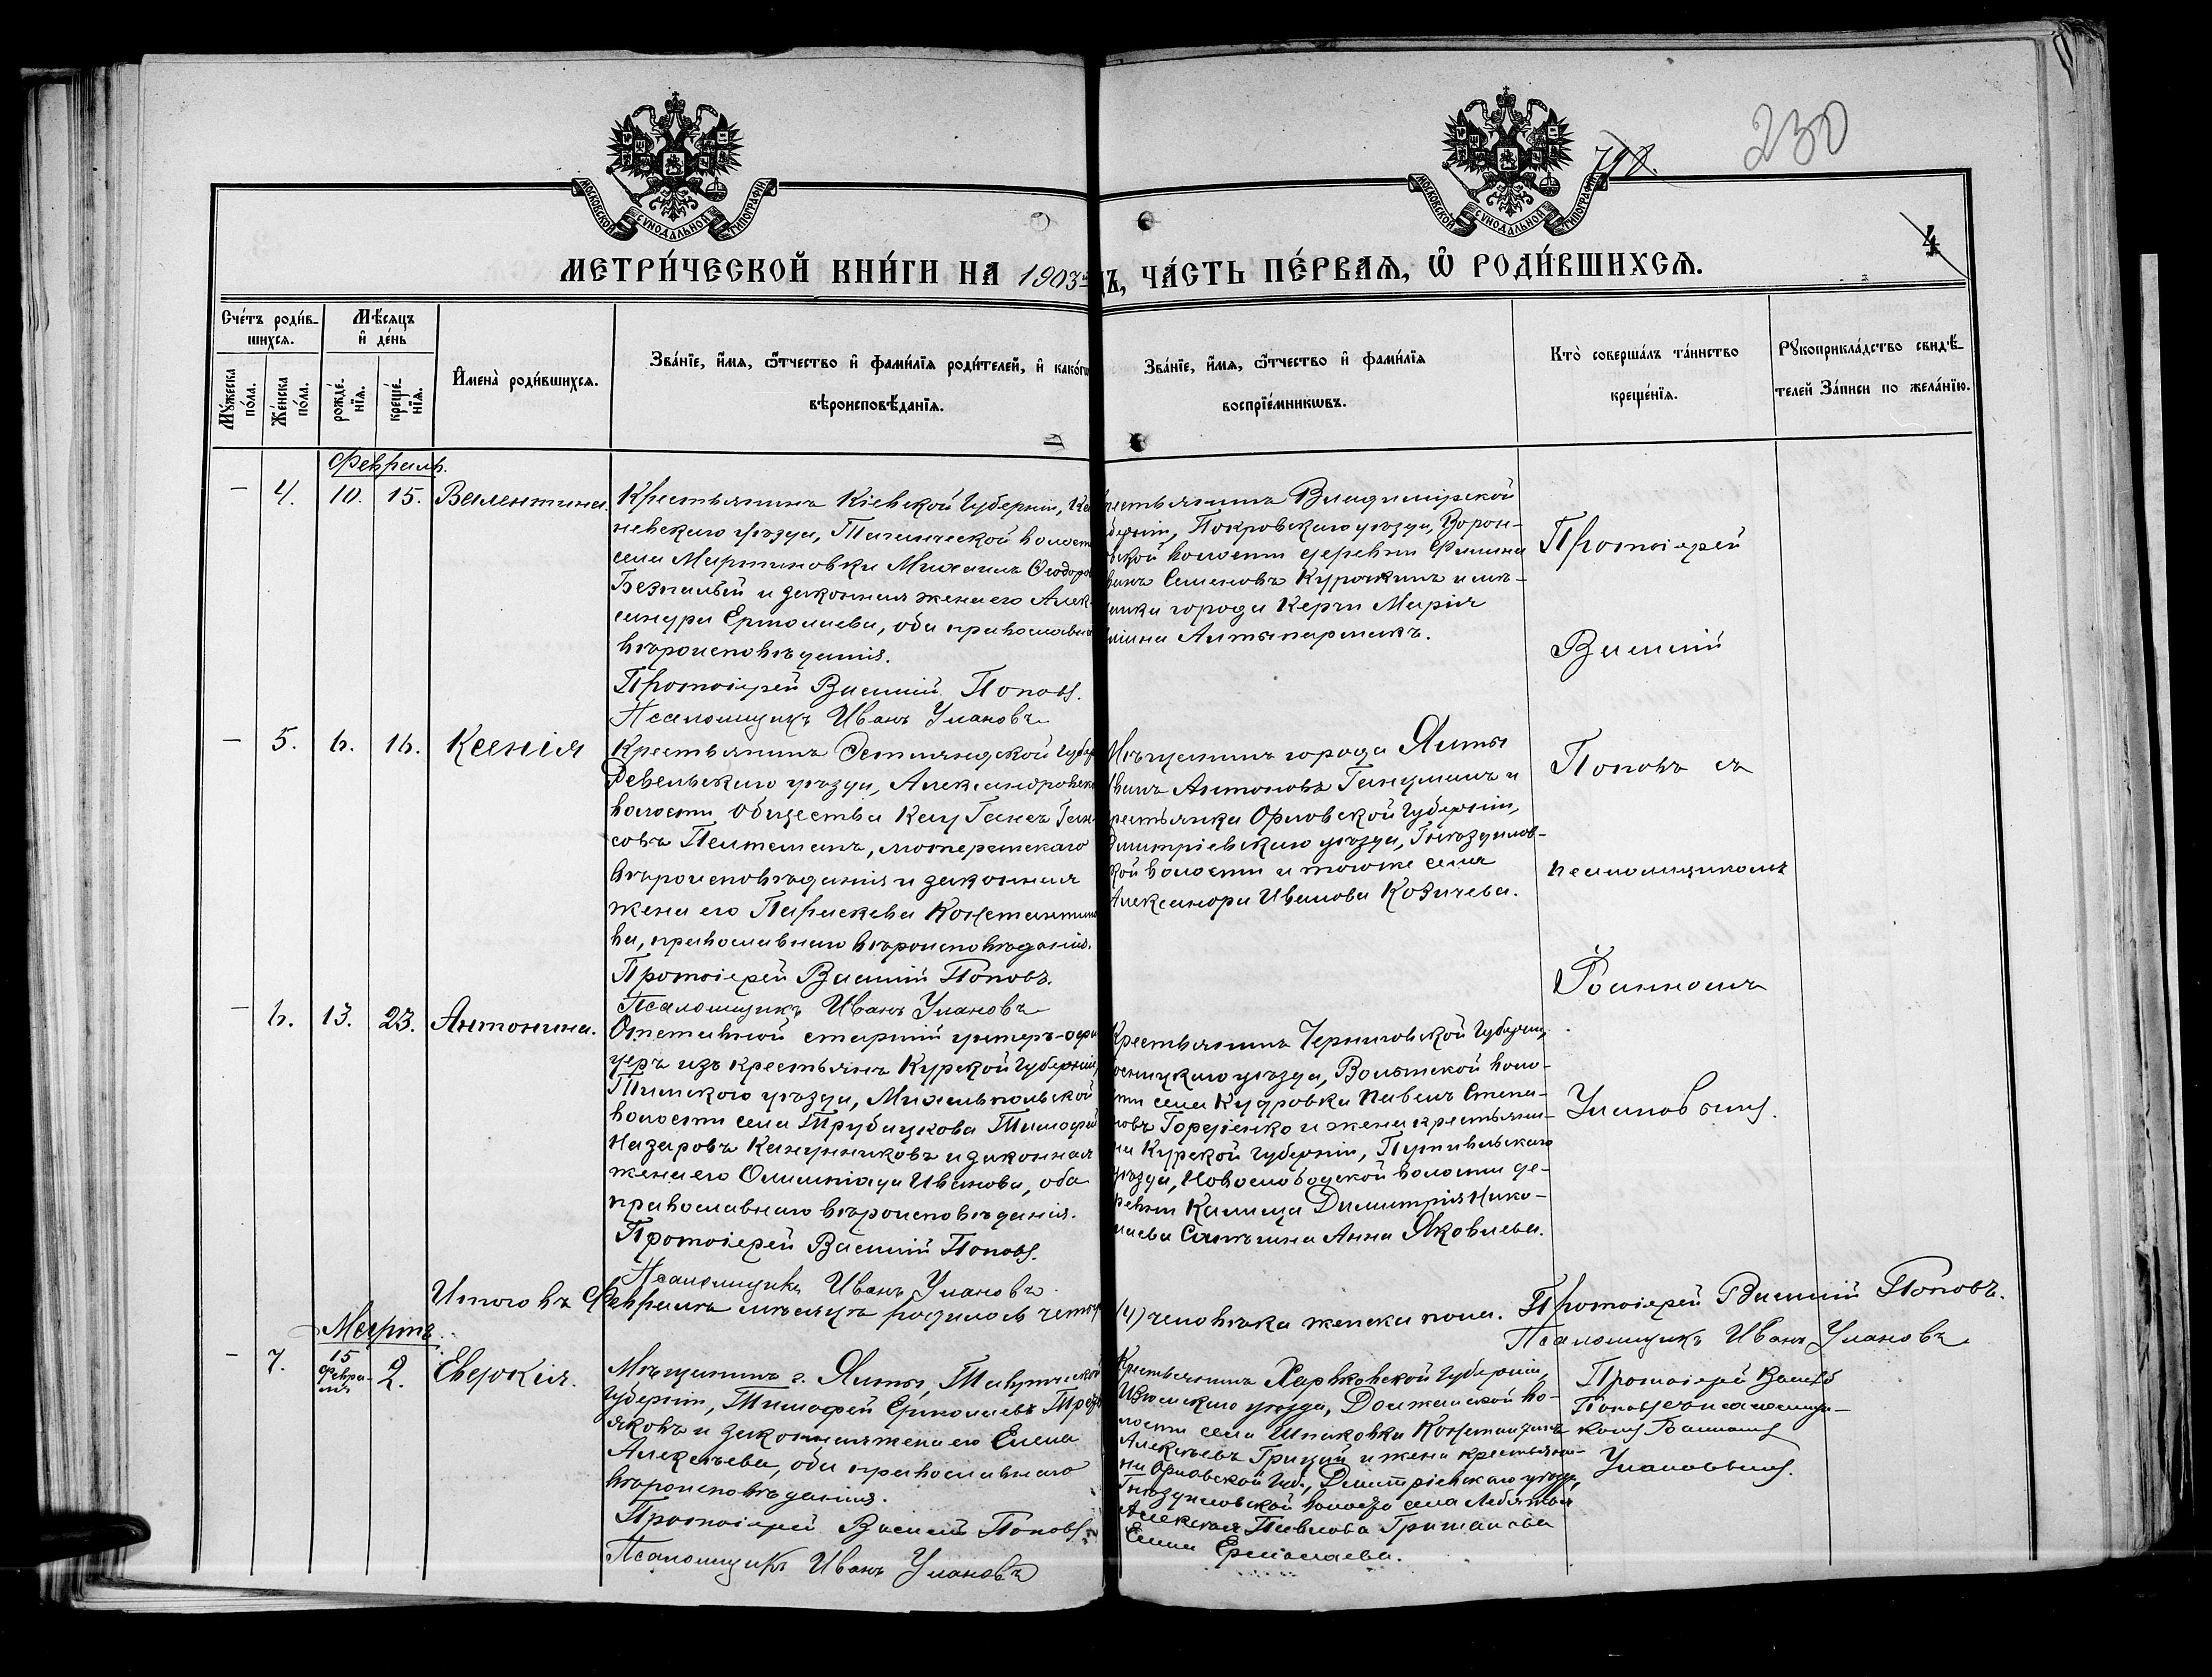 230
798.
4
МОСКОВСКОЙ СѴНОДАЛЬНОЙ ТИПОГРАФІИ
МОСКОВСКОЙ СѴНОДАЛЬНОЙ ТИПОГРАФІИ
МЕТРИ́ЧЕСКОЙ КНИ́ГИ НА 1903й
ДЪ, ЧА́СТЬ ПЕ́РВАѦ, Ѽ РОДИ́ВШИХСѦ.
Сче́тъ роди́в-
шихсѧ.
Мꙋ́жеска по́ла.
Же́нска по́ла.
Мѣ́сѧцъ
и҆ де́нь
рожде́нїѧ.
креще́нїѧ.
И҆мена̀ роди́вшихсѧ.
Зва́нїе, и҆́мѧ, ѻ҆́тчество и҆ фами́лїѧ роди́телей, и҆ како́гѡ
вѣроисповѣ́данїѧ.
Зва́нїе, и҆́мѧ, ѻ҆́тчество и҆ фами́лїѧ
воспрїе́мникѡвъ.
Кто̀ соверша́лъ та́инство
креще́нїѧ.
Рꙋкоприкла́дство свидѣ́-
телей за́писи по жела́нїю.
Февраль.
— 4. 10. 15. Валентина.
Крестьянинъ Кіевской Губерніи, Ка
невскаго уѣзда, Таганческой волост
села Мартиновки Михаилъ Ѳеодоров
Безпалый и законная жена его Алек
сандра Ермолаева, оба православна
вѣроисповѣданія.
Протоіерей Василій Поповъ.
Псаломщикъ Иванъ Улановъ
рестьянинъ Владимірской
берніи, Покровскаго уѣзда, Ворон-
вской волости деревни Филина
ванъ Семеновъ Курочкинъ и мѣ-
щанка города Керчи Марія
Алтыпармакъ.
Протоіерей
Василій
Поповъ съ
псаломщикомъ
Іоанномъ
Улановымъ.
— 5. 6. 16. Ксенія
Крестьянинъ Эстляндской Губер
Ревельскаго уѣзда, Александровско
волости общества Кау Гансъ Ган-
совъ Пельтеманъ, лютеранскаго
вѣроисповѣданія и законная
жена его Параскева Константино
ва, православнаго вѣроисповѣданія.
Протоіерей Василій Поповъ.
Псаломщикъ Иванъ Улановъ
Мѣщанинъ города Ялты
ванъ Антоновъ и
рестьянка Орловской Губерніи,
Дмитріевскаго уѣзда, Гнѣздилов-
кой волости и того же села
Александра Иванова Козичева.
— 6. 13. 23. Антонина.
Отставной старшій унтеръ-офи
церъ изъ крестьянъ Курской Губерніи,
Тимского уѣзда, Михельпольской
волости села Трубицкова Тимофей
Назаровъ Канунниковъ и законная
жена его Олимпіада Иванова, оба
православнаго вѣроисповѣданія.
Протоіерей Василій Поповъ.
Псаломщикъ Иванъ Улановъ.
Крестьянинъ Черниговской Губерніи,
осницкаго уѣзда, Волынской воло-
сти села Кудровки Павелъ Степа-
новъ Гордіенко и жена крестьяни-
на Курской Губерніи, Путивльскаго
уѣзда, Новослободской волости де-
ревни Калища Димитрія Нико-
лаева Анна Яковлева.
Итого въ Февралѣ мѣсяцѣ родилось четы
(4) человѣка женска пола. Протоіерей Василій Поповъ.
Псаломщикъ Иванъ Улановъ
Мартъ.
— 7. 15 Февра-
ля 2. Евдокія.
Мѣщанинъ г. Ялты, Таврической
Губерніи, Тимофей Ермолаевъ Трет
яковъ и законная жена его Елена
Алексѣева, оба православнаго
вѣроисповѣданія.
Протоіерей Василій Поповъ.
Псаломщикъ Иванъ Улановъ
Крестьянинъ Харьковской Губерніи,
Изюмскаго уѣзда, Должанской во-
лости села Шпаковка Константинъ
Алексѣевъ Грицай и жена крестьяни-
на Орловской Губ., Дмитріевскаго уѣзда,
Гнѣздиловской волости села
Алексѣя Павлова Гришанова
Елена Ермолаева.
Протоіерей Василій
Поповъ съ псаломщи-
комъ Іоанномъ
Улановымъ.